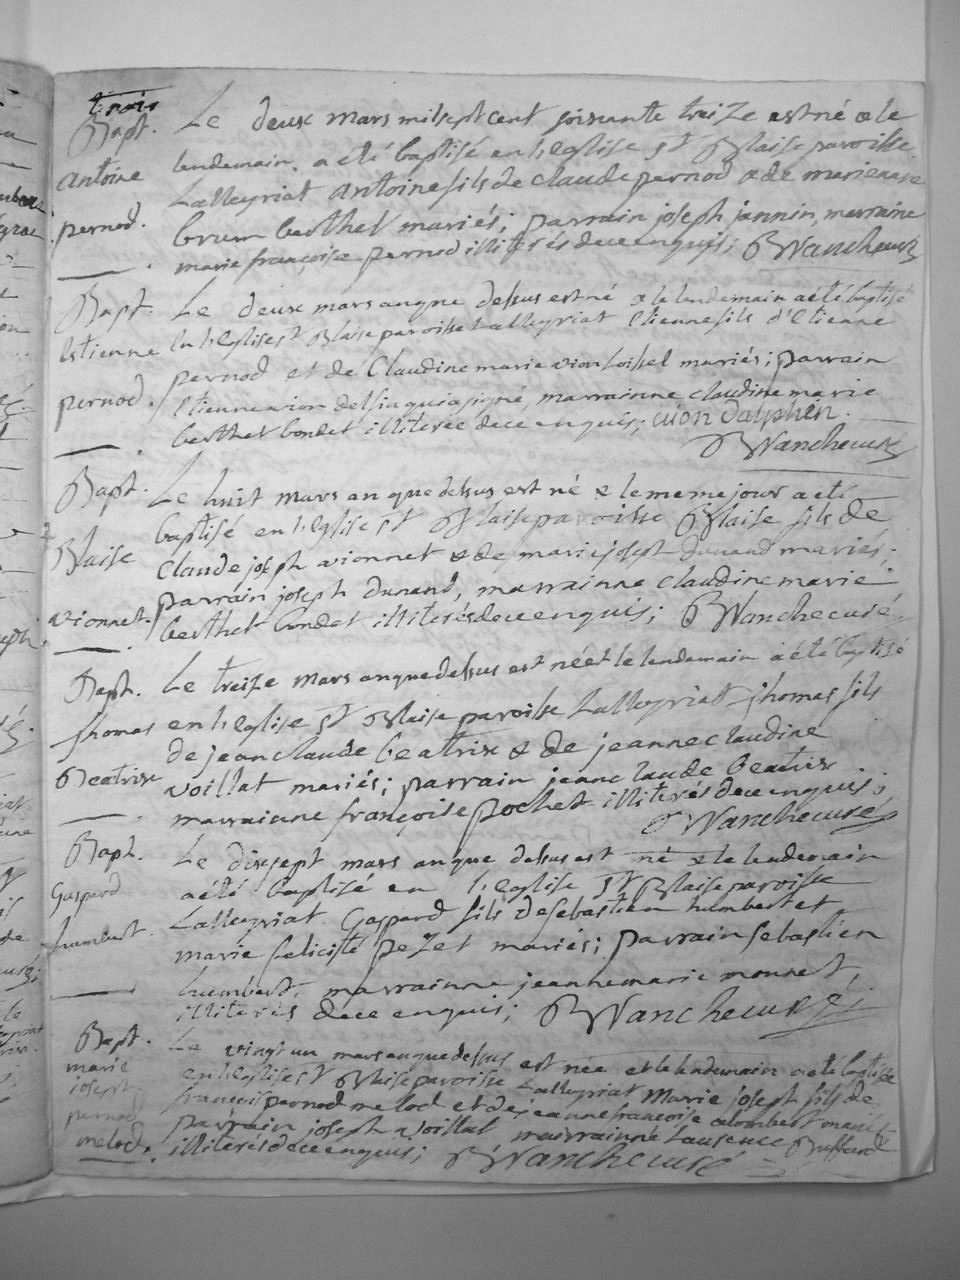 trois
Bapt.
antoine
pernod.
Le deux mars mil sept cent soixante treize est né & le
lendemain a été baptisé en l'eglise St Blaise paroisse
Lalleyriat antoine fils de claude pernod & de marie
brun berthet mariés; parrain joseph jannin, marraine
marie françoise pernod illiterés de ce enquis; BVvanche curé
Bapt.
Estienne
pernod.
Le deux mars an que dessus est né & le lendemain a été baptisé
en l'Eglise St Blaise paroisse Lalleyriat Etienne fils d'Etienne
pernod et de Claudine marie vion loisel mariés; parrain
Etienne vion delfin qui a signé, marrainne claudine marie
berthet bondet illiterée de ce enquis; vion dalphin.
BVvanche curé
Bapt.
Blaise
vionnet.
Le huit mars an que dessus est né & le meme jour a eté
baptisé en l'Eglise St Blaise paroisse Blaise fils de
Claude joseph vionnet & de marie joseph dunand mariés.
parrain joseph dunand, marrainne claudine marie
berthet bondet illiterés de ce enquis; BVvanche curé
Bapt.
thomas
Beatrix
Le treize mars an que dessus est né et le lendemain a été baptisé
en l'eglise St Blaise paroisse Lalleyriat thomas fils
de jean claude beatrix & de jeanne claudine
voillat mariés; parrain jean claude Beatrix
marrainne françoise pochet illiterés de ce enquis;
BVvanche curé
Bapt.
Gaspard
humbert.
Le dixsept mars an que dessus est né & le lendemain
a été baptisé en l'eglise St Blaise paroisse
Lalleyriat Gaspard fils de sebastien humbert et
marie felicité pezet mariés; parrain sebastien
humbert, marrainne jeanne marie monnet,
illiterés de ce enquis; BVvanche curé
Bapt.
marie
joseph
pernod
melod.
Le vingt un mars an que dessus est née et le lendemain a été baptisée
en l'eglise St Blaise paroisse Lalleyriat Marie joseph fils de
françois pernod melod et de jeanne françoise colombert mariés
parrain joseph voillat, marrainne Laurence Buffard
illiterés de ce enquis; BVvanche curé